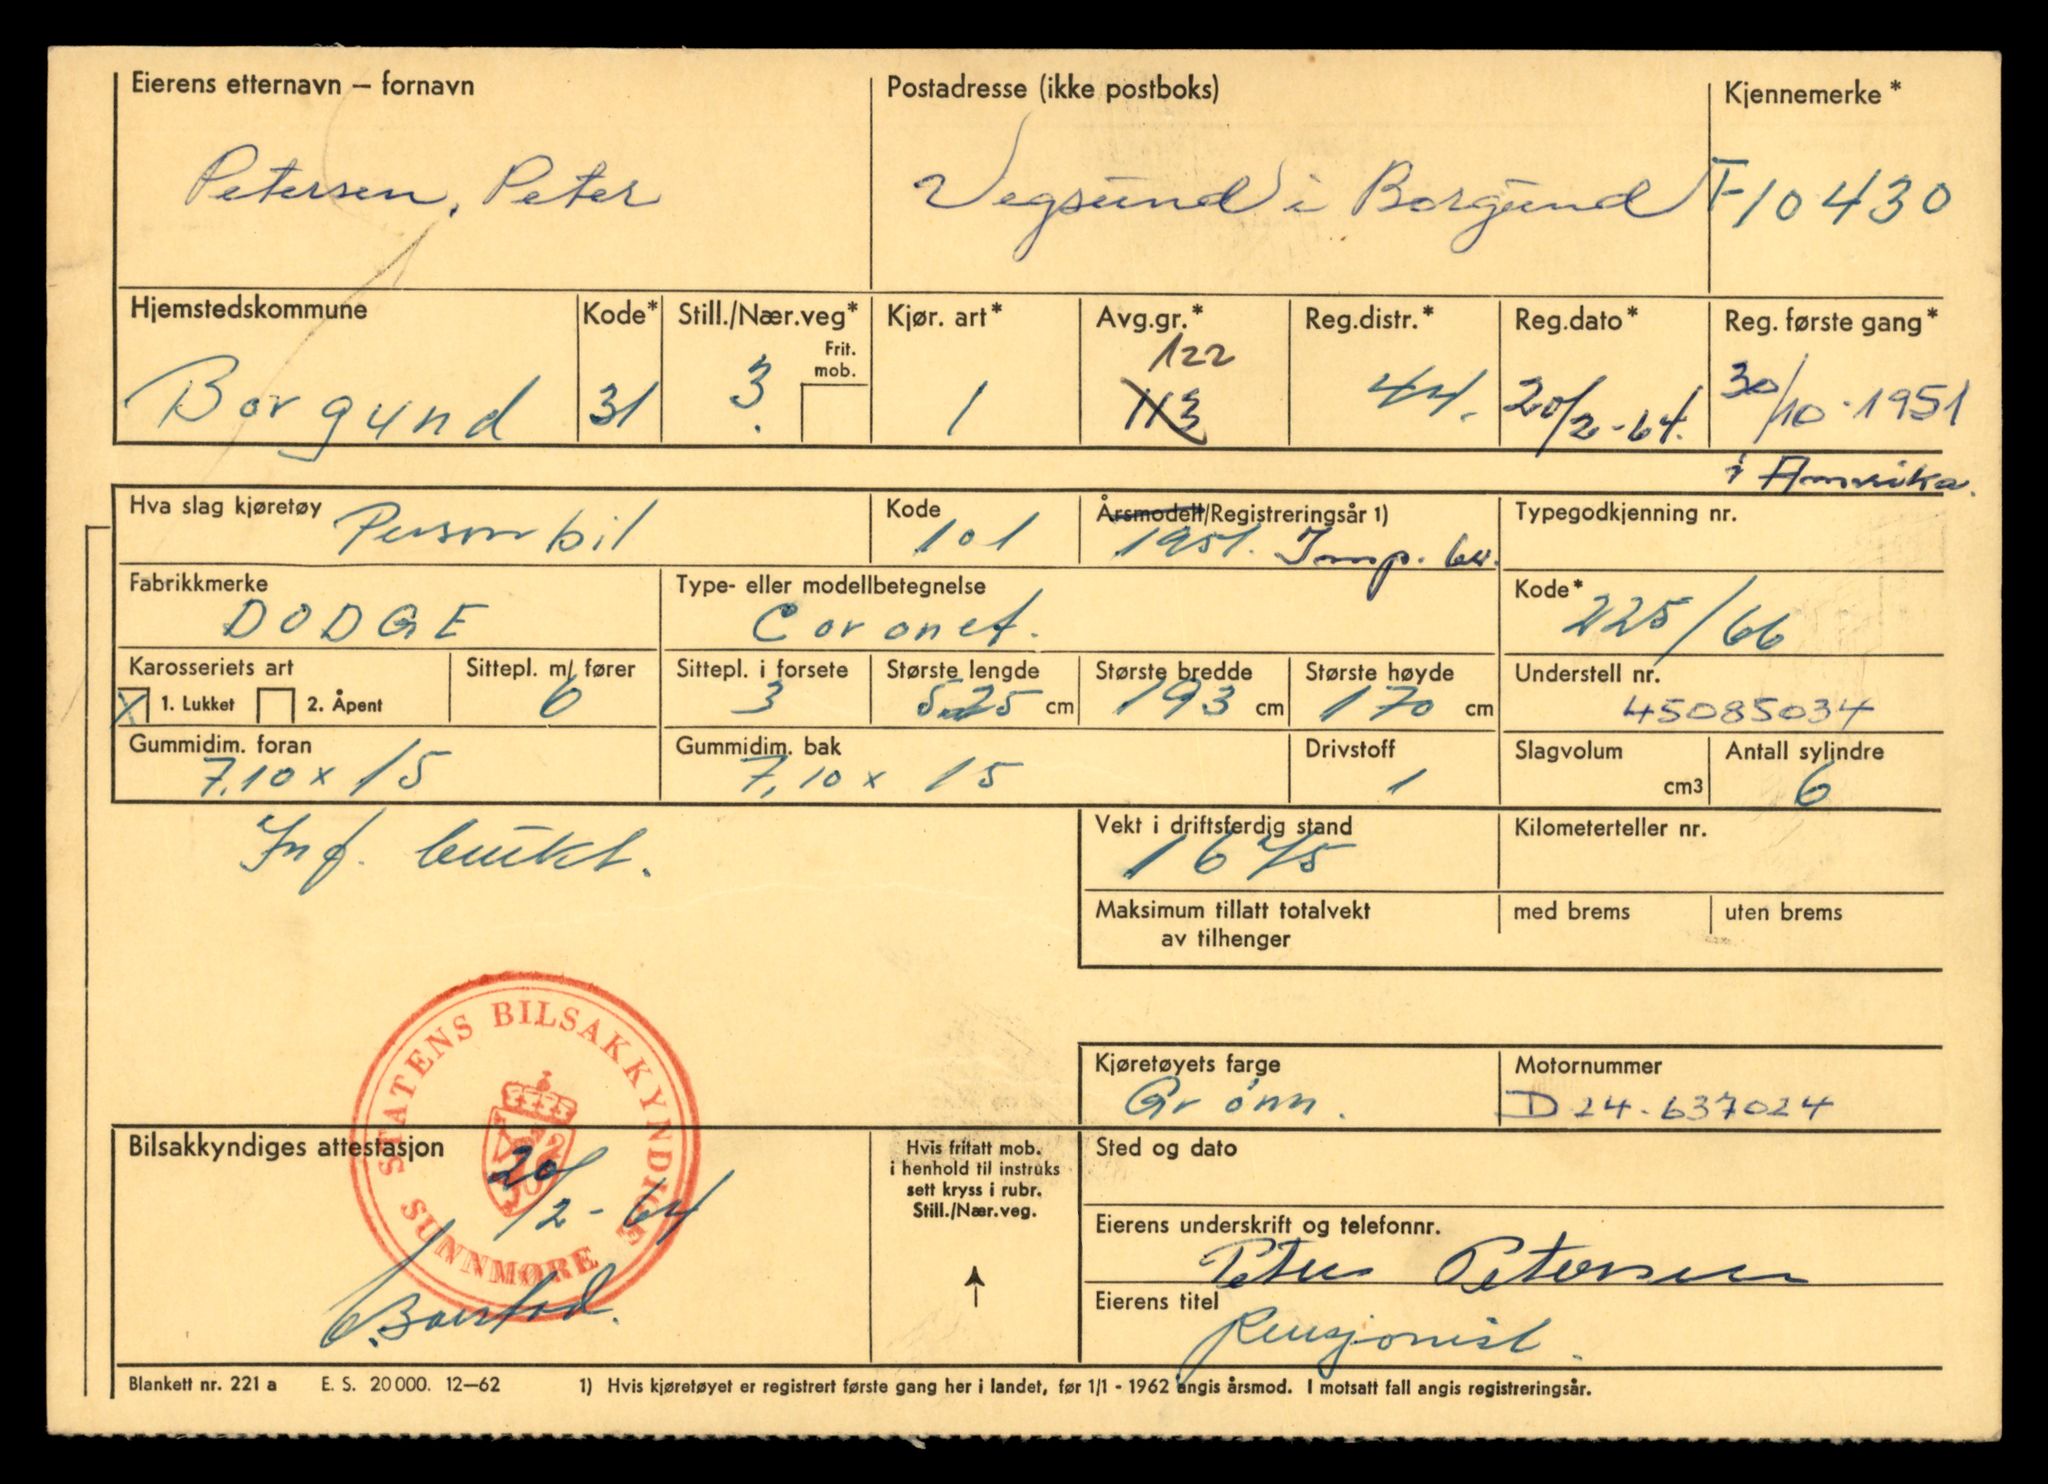 Eierens etternavn — fornavn Postadresse (ikke postboks) Kjennemerke *
Petersen, Peter Vegsund i Borgund T-10430
Hjemstedskommune Kode* Still./Nær.veg* Kjør. art* Avg.gr.* Reg.distr.* Reg.dato* Reg. første gang*
Frit. mob. 122
Borgund 31 3. 1 113 44. 20/2-64. 30/10-1951
i Amerika.
Hva slag kjøretøy Kode Årsmodell/Registreringsår 1) Typegodkjenning nr.
Personbil 101 1951. Imp. 64.
Fabrikkmerke Type- eller modellbetegnelse Kode*
DODGE Coronet. 225/66
Karosseriets art Sittepl. m/ fører Sittepl. i forsete Største lengde Største bredde Største høyde Understell nr.
X 1. Lukket 2. Åpent 6 3 525 cm 193 cm 170 cm 45085034
Gummidim. foran Gummidim. bak Drivstoff Slagvolum Antall sylindre
7,10 x 15 7,10 x 15 1 cm3 6
Inf. bukt.
Vekt i driftsferdig stand Kilometerteller nr.
1675
Maksimum tillatt totalvekt med brems uten brems
av tilhenger
STATENS BILSAKKYNDIGE
SUNNMØRE
Kjøretøyets farge Motornummer
Grønn. D24-637024
Bilsakkyndiges attestasjon
20/2-64
Hvis fritatt mob.
i henhold til instruks
sett kryss i rubr.
Still./Nær.veg.
Sted og dato
Eierens underskrift og telefonnr.
Peter Petersen
Eierens titel
Pensjonist.
Blankett nr. 221 a E. S. 20 000. 12—62 1) Hvis kjøretøyet er registrert første gang her i landet, før 1/1 - 1962 angis årsmod. I motsatt fall angis registreringsår.